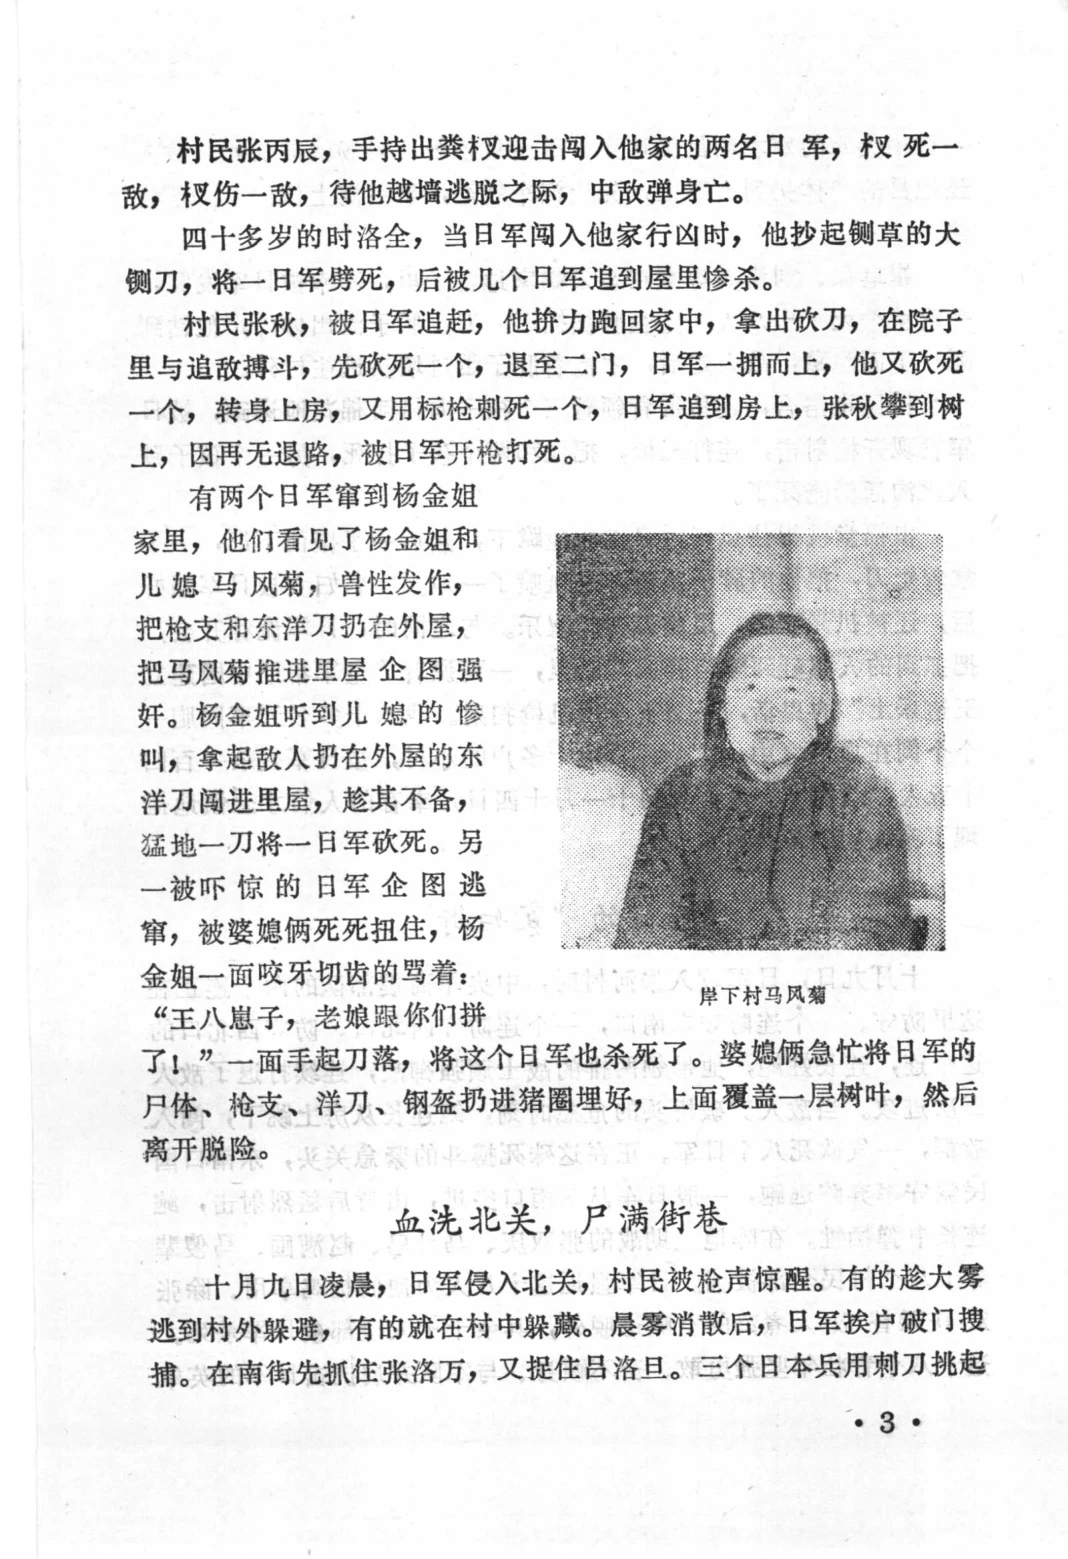 村民张丙辰，手持出粪杈迎击闯入他家的两名日军，杈死一
敌，杈伤一敌，待他越墙逃脱之际，中敌弹身亡。
四十多岁的时洛全，当日军闯入他家行凶时，他抄起铡草的大
铡刀，将一日军劈死，后被几个日军追到屋里惨杀。
村民张秋，被日军追赶，他拚力跑回家中，拿出砍刀，在院子
里与追敌搏斗，先砍死一个，退至二门，日军一拥而上，他又砍死
一个，转身上房，又用标枪刺死一个，日军追到房上，张秋攀到树
上，因再无退路，被日军开枪打死。
有两个日军窜到杨金姐
家里，他们看见了杨金姐和
儿媳马风菊，兽性发作，
把枪支和东洋刀扔在外屋，
把马风菊推进里屋企图强
奸。杨金姐听到儿媳的惨
叫，拿起敌人扔在外屋的东
洋刀闯进里屋，趁其不备，
猛地一刀将一日军砍死。另
一被吓惊的日军企图逃
窜，被婆媳俩死死扭住，杨
金姐一面咬牙切齿的骂着：
“王八崽子，老娘跟你们拼
了！”一面手起刀落，将这个日军也杀死了。婆媳俩急忙将日军的
尸体、枪支、洋刀、钢盔扔进猪圈埋好，上面覆盖一层树叶，然后
离开脱险。
岸下村马风菊
血洗北关，尸满街巷
十月九日凌晨，日军侵入北关，村民被枪声惊醒。有的趁大雾
逃到村外躲避，有的就在村中躲藏。晨雾消散后，日军挨户破门搜
捕。在南街先抓住张洛万，又捉住吕洛旦。三个日本兵用刺刀挑起
• 3 •